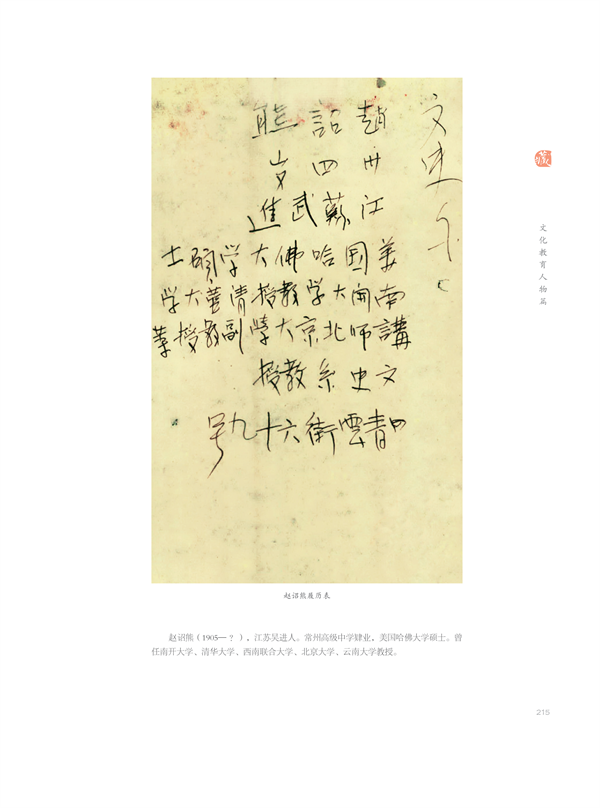 文史
趙詔熊
卅四岁
江蘇武進
美国哈佛大学碩士
南開大学教授清華大学
講師北京大學副教授
文史系教授
青雲街六十九号
赵诏熊履历表
赵诏熊（1905—？），江苏吴进人。常州高级中学肄业，美国哈佛大学硕士。曾
任南开大学、清华大学、西南联合大学、北京大学、云南大学教授。
文化教育人物篇
215